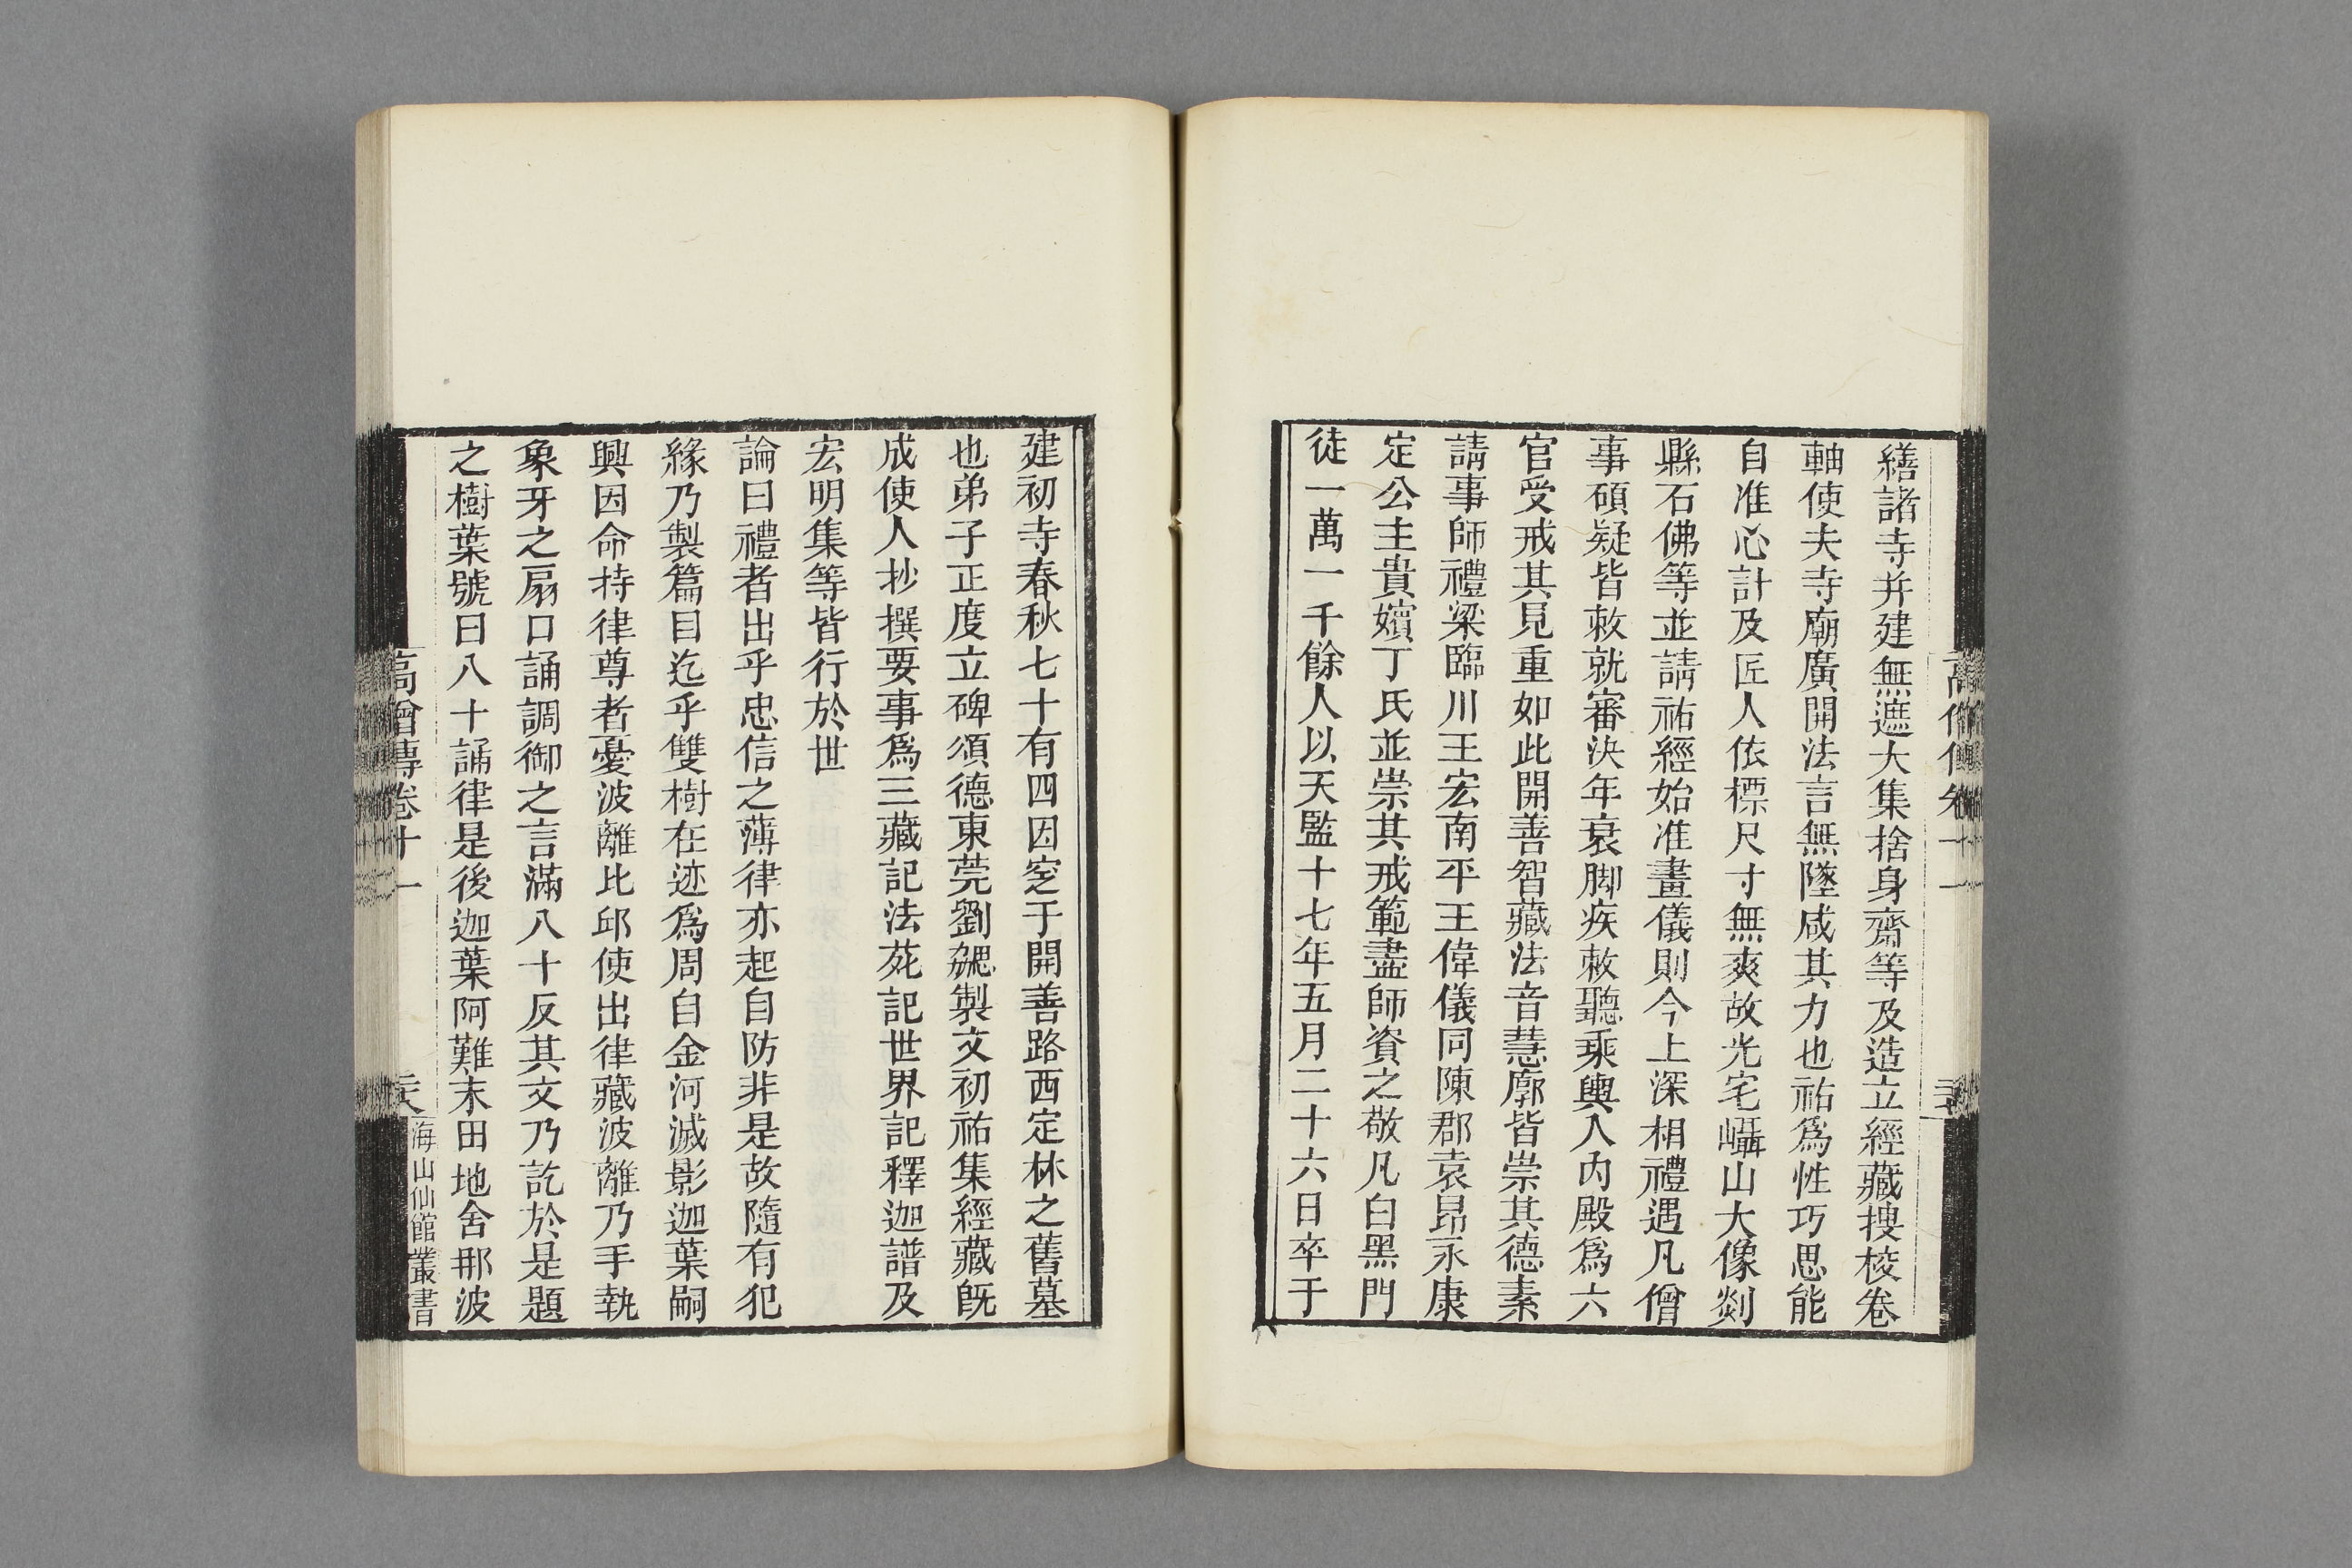 繕諸寺并建無遮大集捨身齋等及造立經藏搜校卷
軸使夫寺廟廣開法言無墜咸其力也祐爲性巧思能
自准心計及匠人依標尺寸無爽故光宅㠎山大像剡
縣石佛等並請祐經始准畫儀則今上深相禮遇凡僧
事碩疑皆敕就審決年衰脚疾敕聽乘輿入內殿爲六
官受戒其見重如此開善智藏法音慧廓皆崇其德素
請事師禮梁臨川王宏南平王偉儀同陳郡袁昂永康
定公主貴嬪丁氏並崇其戒範盡師資之敬凡白黑門
徒一萬一千餘人以天監十七年五月二十六日卒于
建初寺春秋七十有四因窆于開善路西定林之舊墓
也弟子正度立碑頌德東莞劉勰製文初祐集經藏旣
成使人抄撰要事爲三藏記法苑記世界記釋迦譜及
宏明集等皆行於世
論曰禮者出乎忠信之薄律亦起自防非是故隨有犯
緣乃製篇目迄乎雙樹在迹爲周自金河滅影迦葉嗣
興因命持律尊者憂波離比邱使出律藏波離乃手執
象牙之扇口誦調御之言滿八十反其文乃訖於是題
之樹葉號曰八十誦律是後迦葉阿難末田地舍那波
高僧傳卷十一
海山仙館叢書